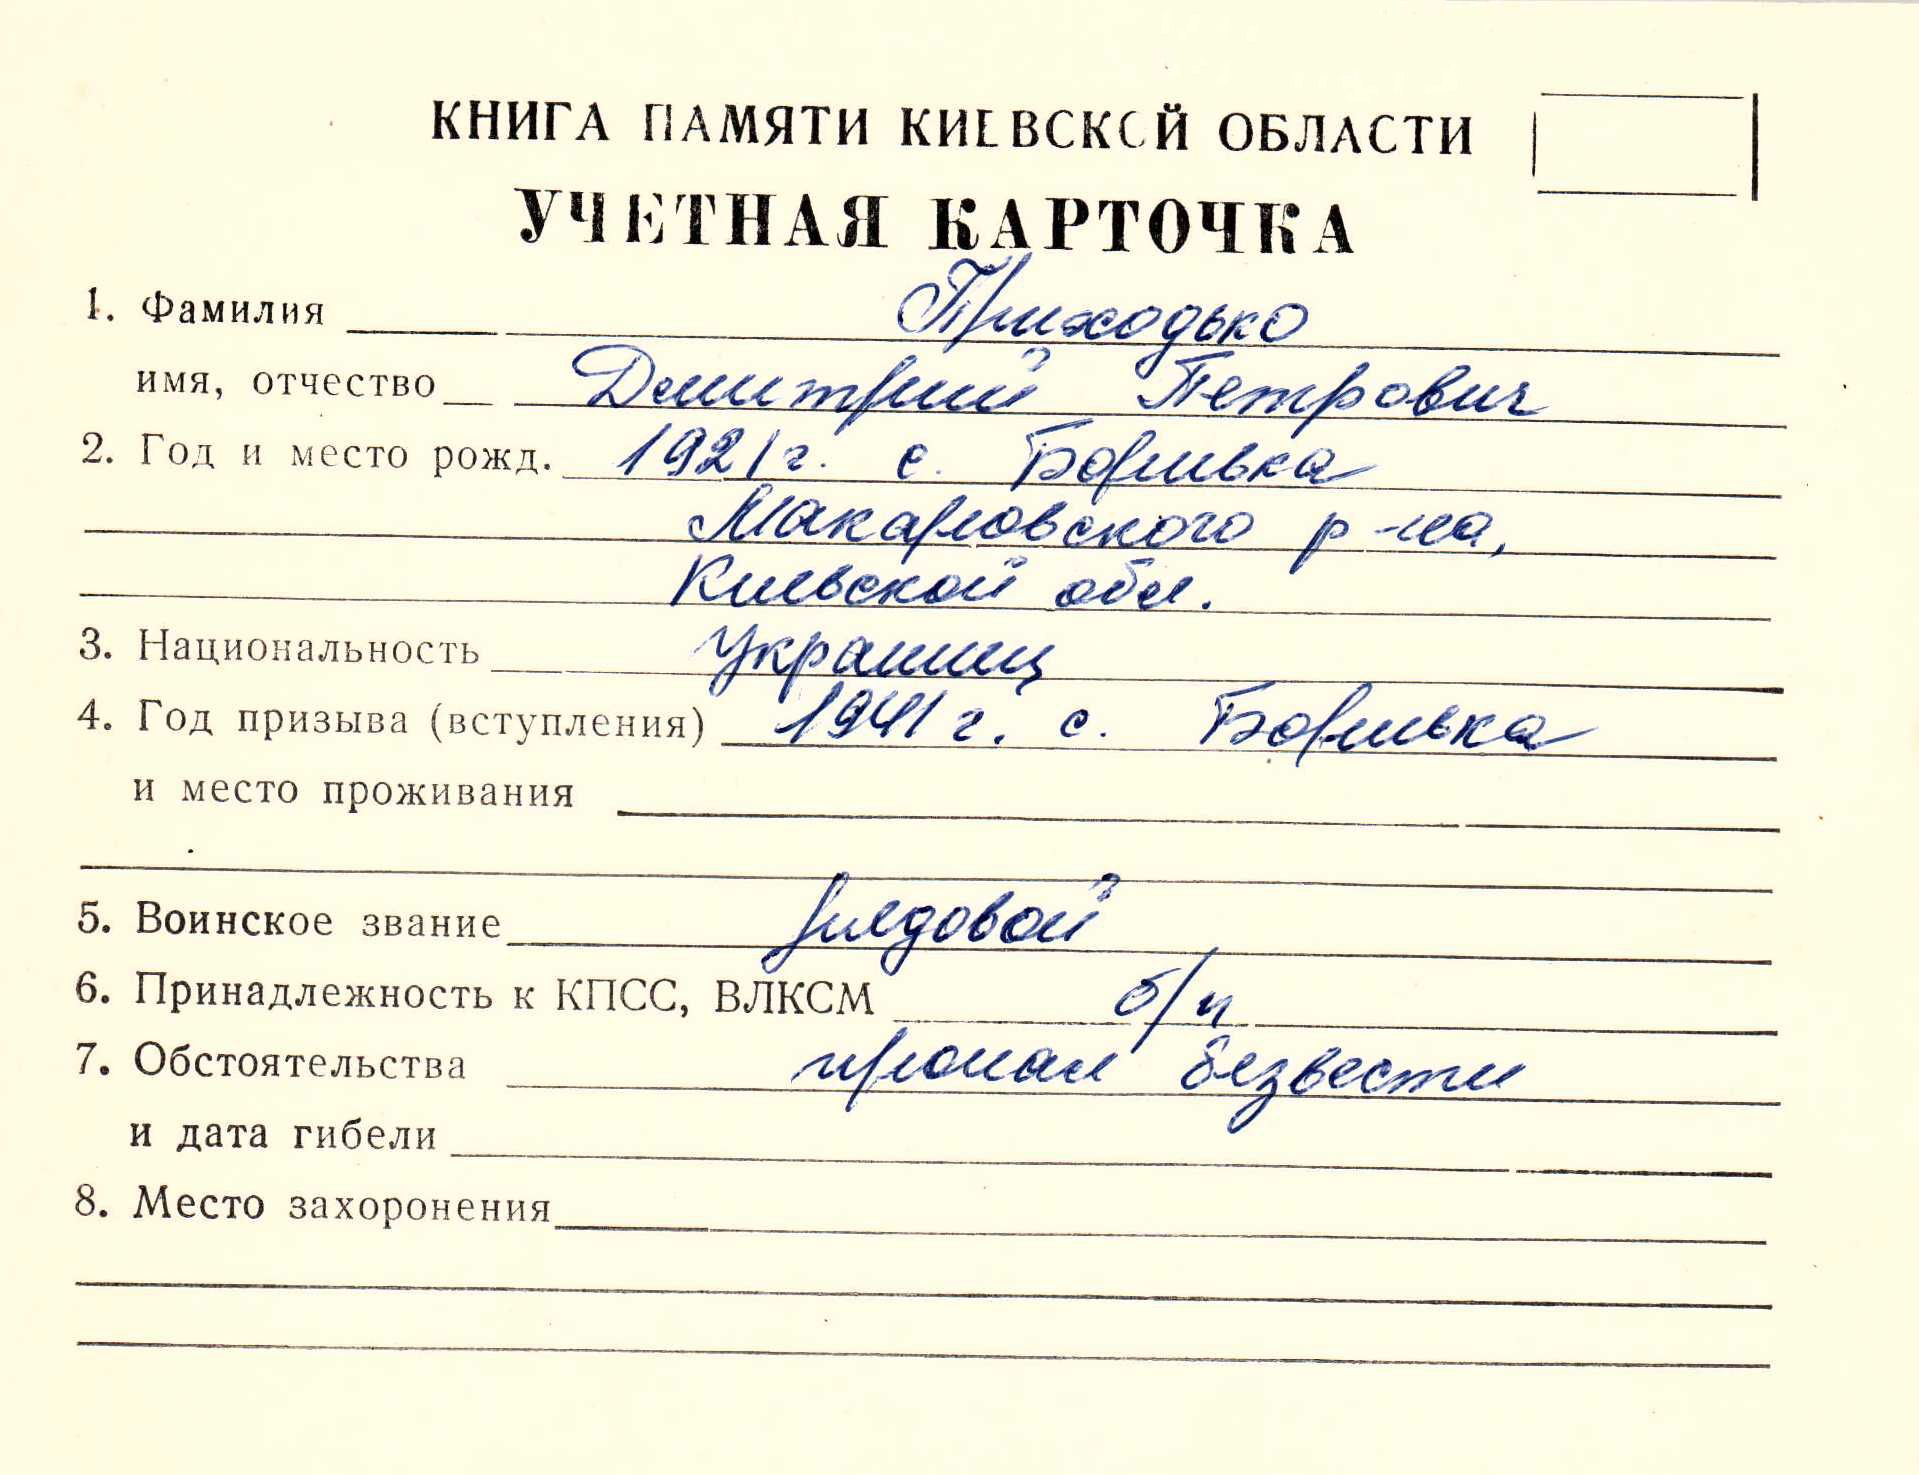 КНИГА ПАМЯТИ КИЕВСКОЙ ОБЛАСТИ
УЧЕТНАЯ КАРТОЧКА
1. Фамилия Приходько
имя, отчество Дмитрий Петрович
2. Год и место рожд. 1921 г. с. Боривка
Макаровского р-на,
Киевской обл.
3. Национальность Украинец
4. Год призыва (вступления) 1941 г. с. Боривка
и место проживания
5. Воинское звание рядовой
6. Принадлежность к КПСС, ВЛКСМ б/п
7. Обстоятельства пропал безвести
и дата гибели
8. Место захоронения